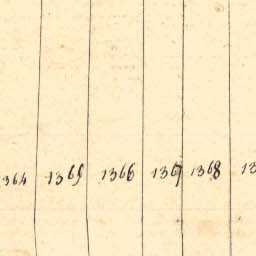 1364 1365 1366 1367 1368 13